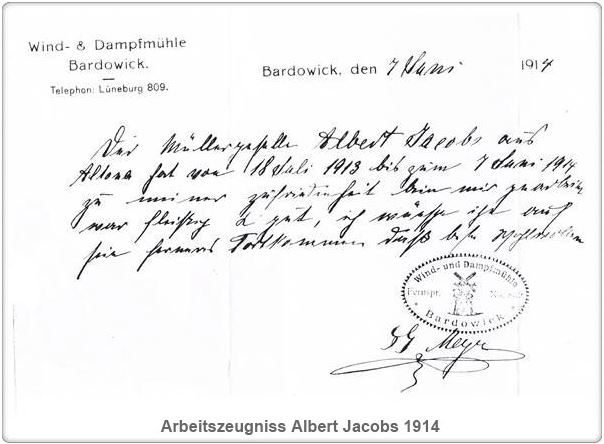 Wind- & Dampfmühle
Bardowick.
Telephon: Lüneburg 809.
Bardowick, den 7 Juni 1914
Der Müllergeselle Albert Jacobs aus
Altona hat von 18 Juli 1913 bis zum 7 Juni 1914
zu meiner zufriedenheit bein mir gearbeitet
war fleißig & gut, ich wünsche ihn auf
sein ferneres Fortkommen daß beste
Wind- und Dampfmühle
Fernspr.
Bardowick
Meyer
Arbeitszeugniss Albert Jacobs 1914